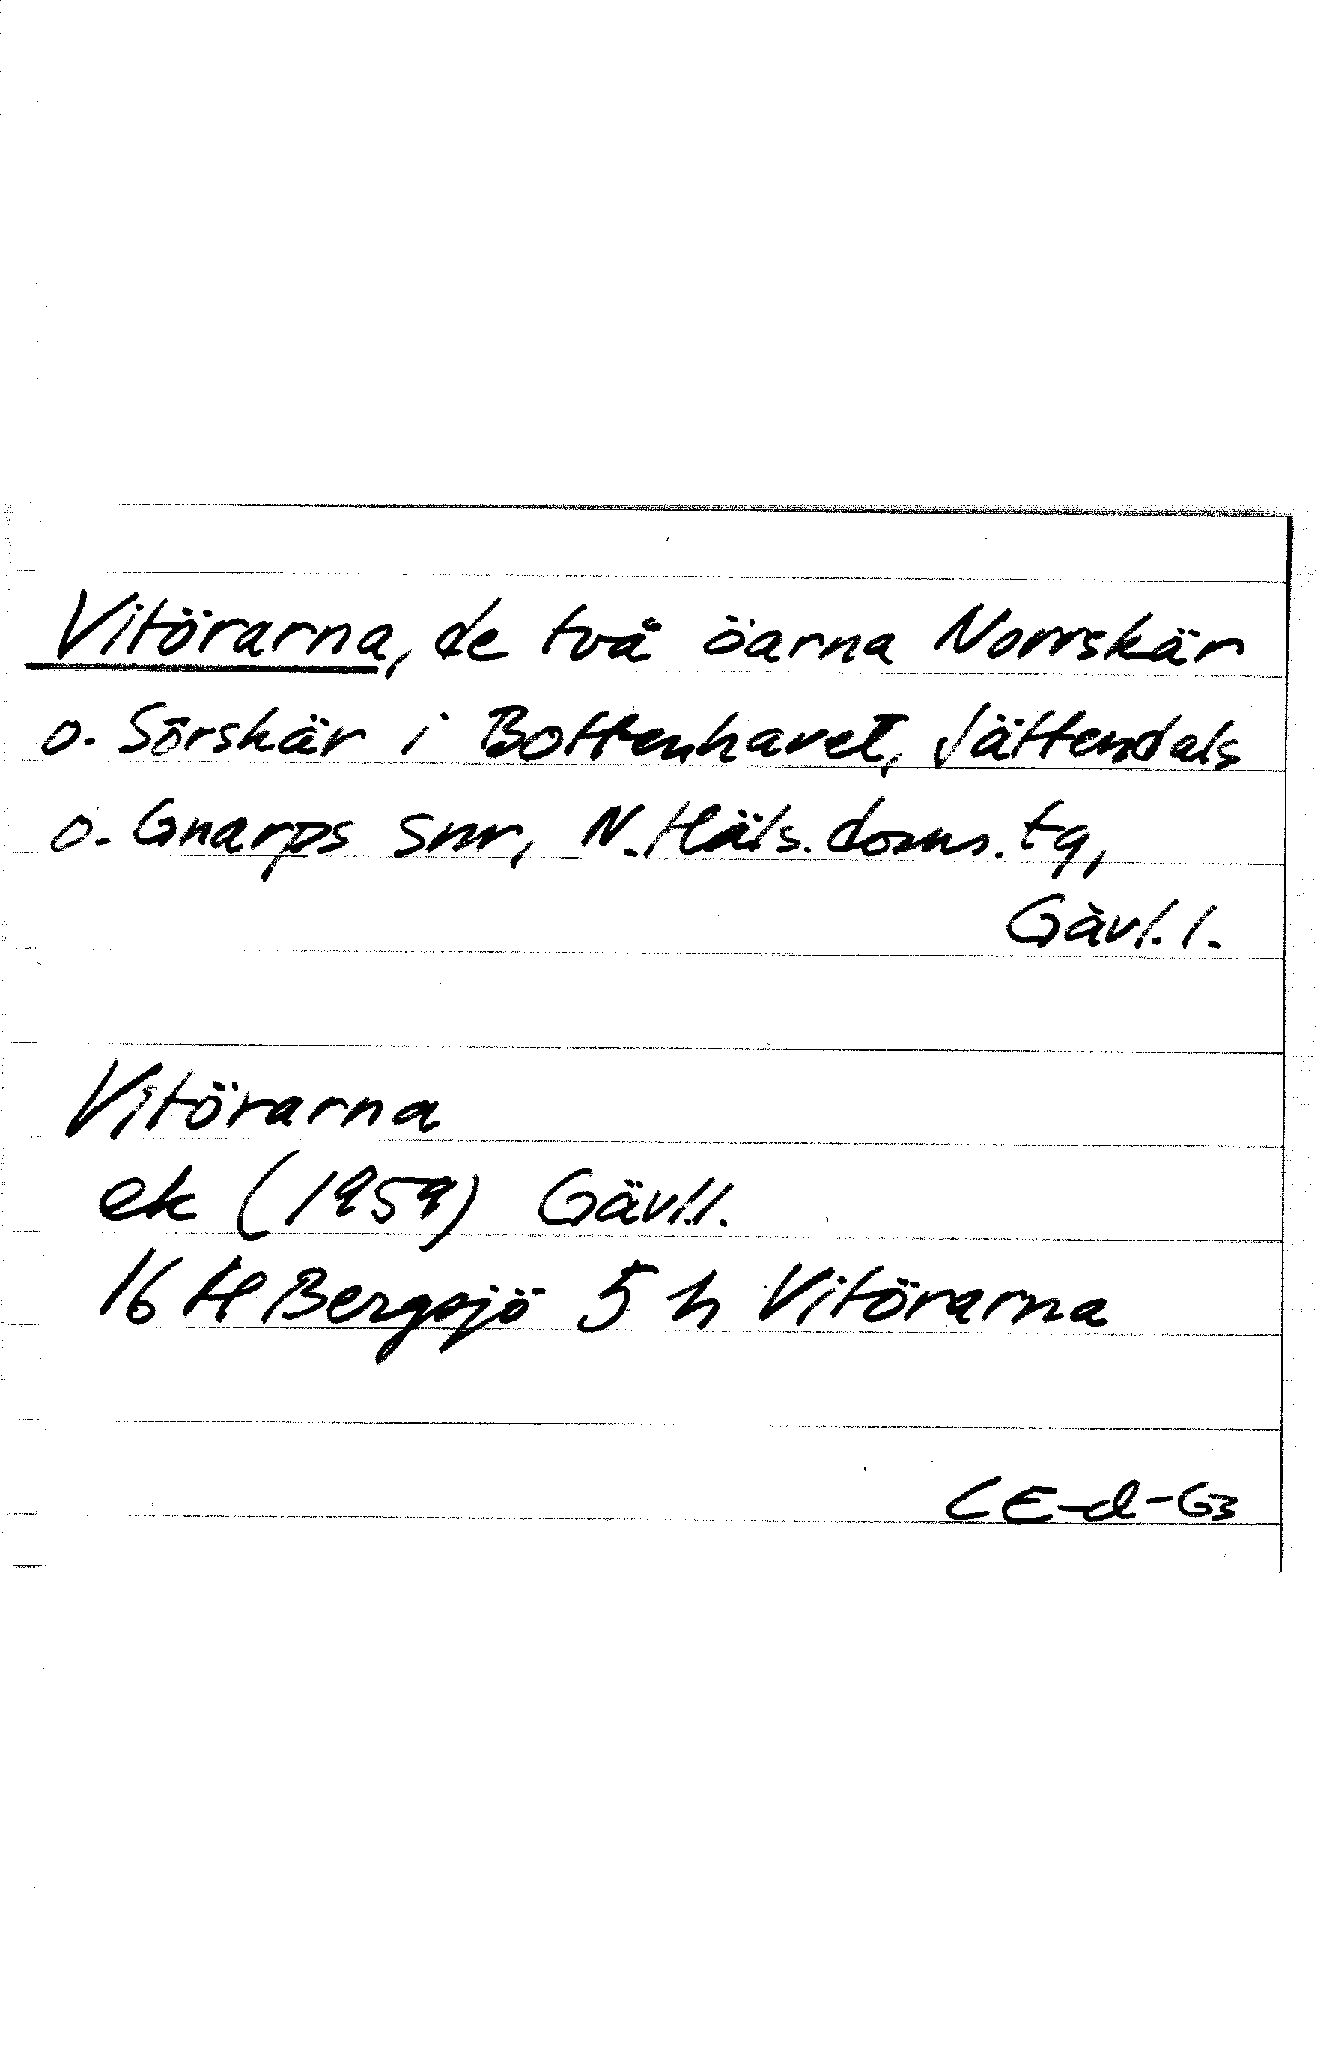 Vitörarna, de två öarna Norrskär
o. Sörskär i Bottenhavet, Jättendals
o. Gnarps snr, N. Häls. doms. tg,
Gävl. l.
Vitörarna
ek (1959) Gävl.l.
16 H Bergsjö 5 h Vitörarna
CE-d-63